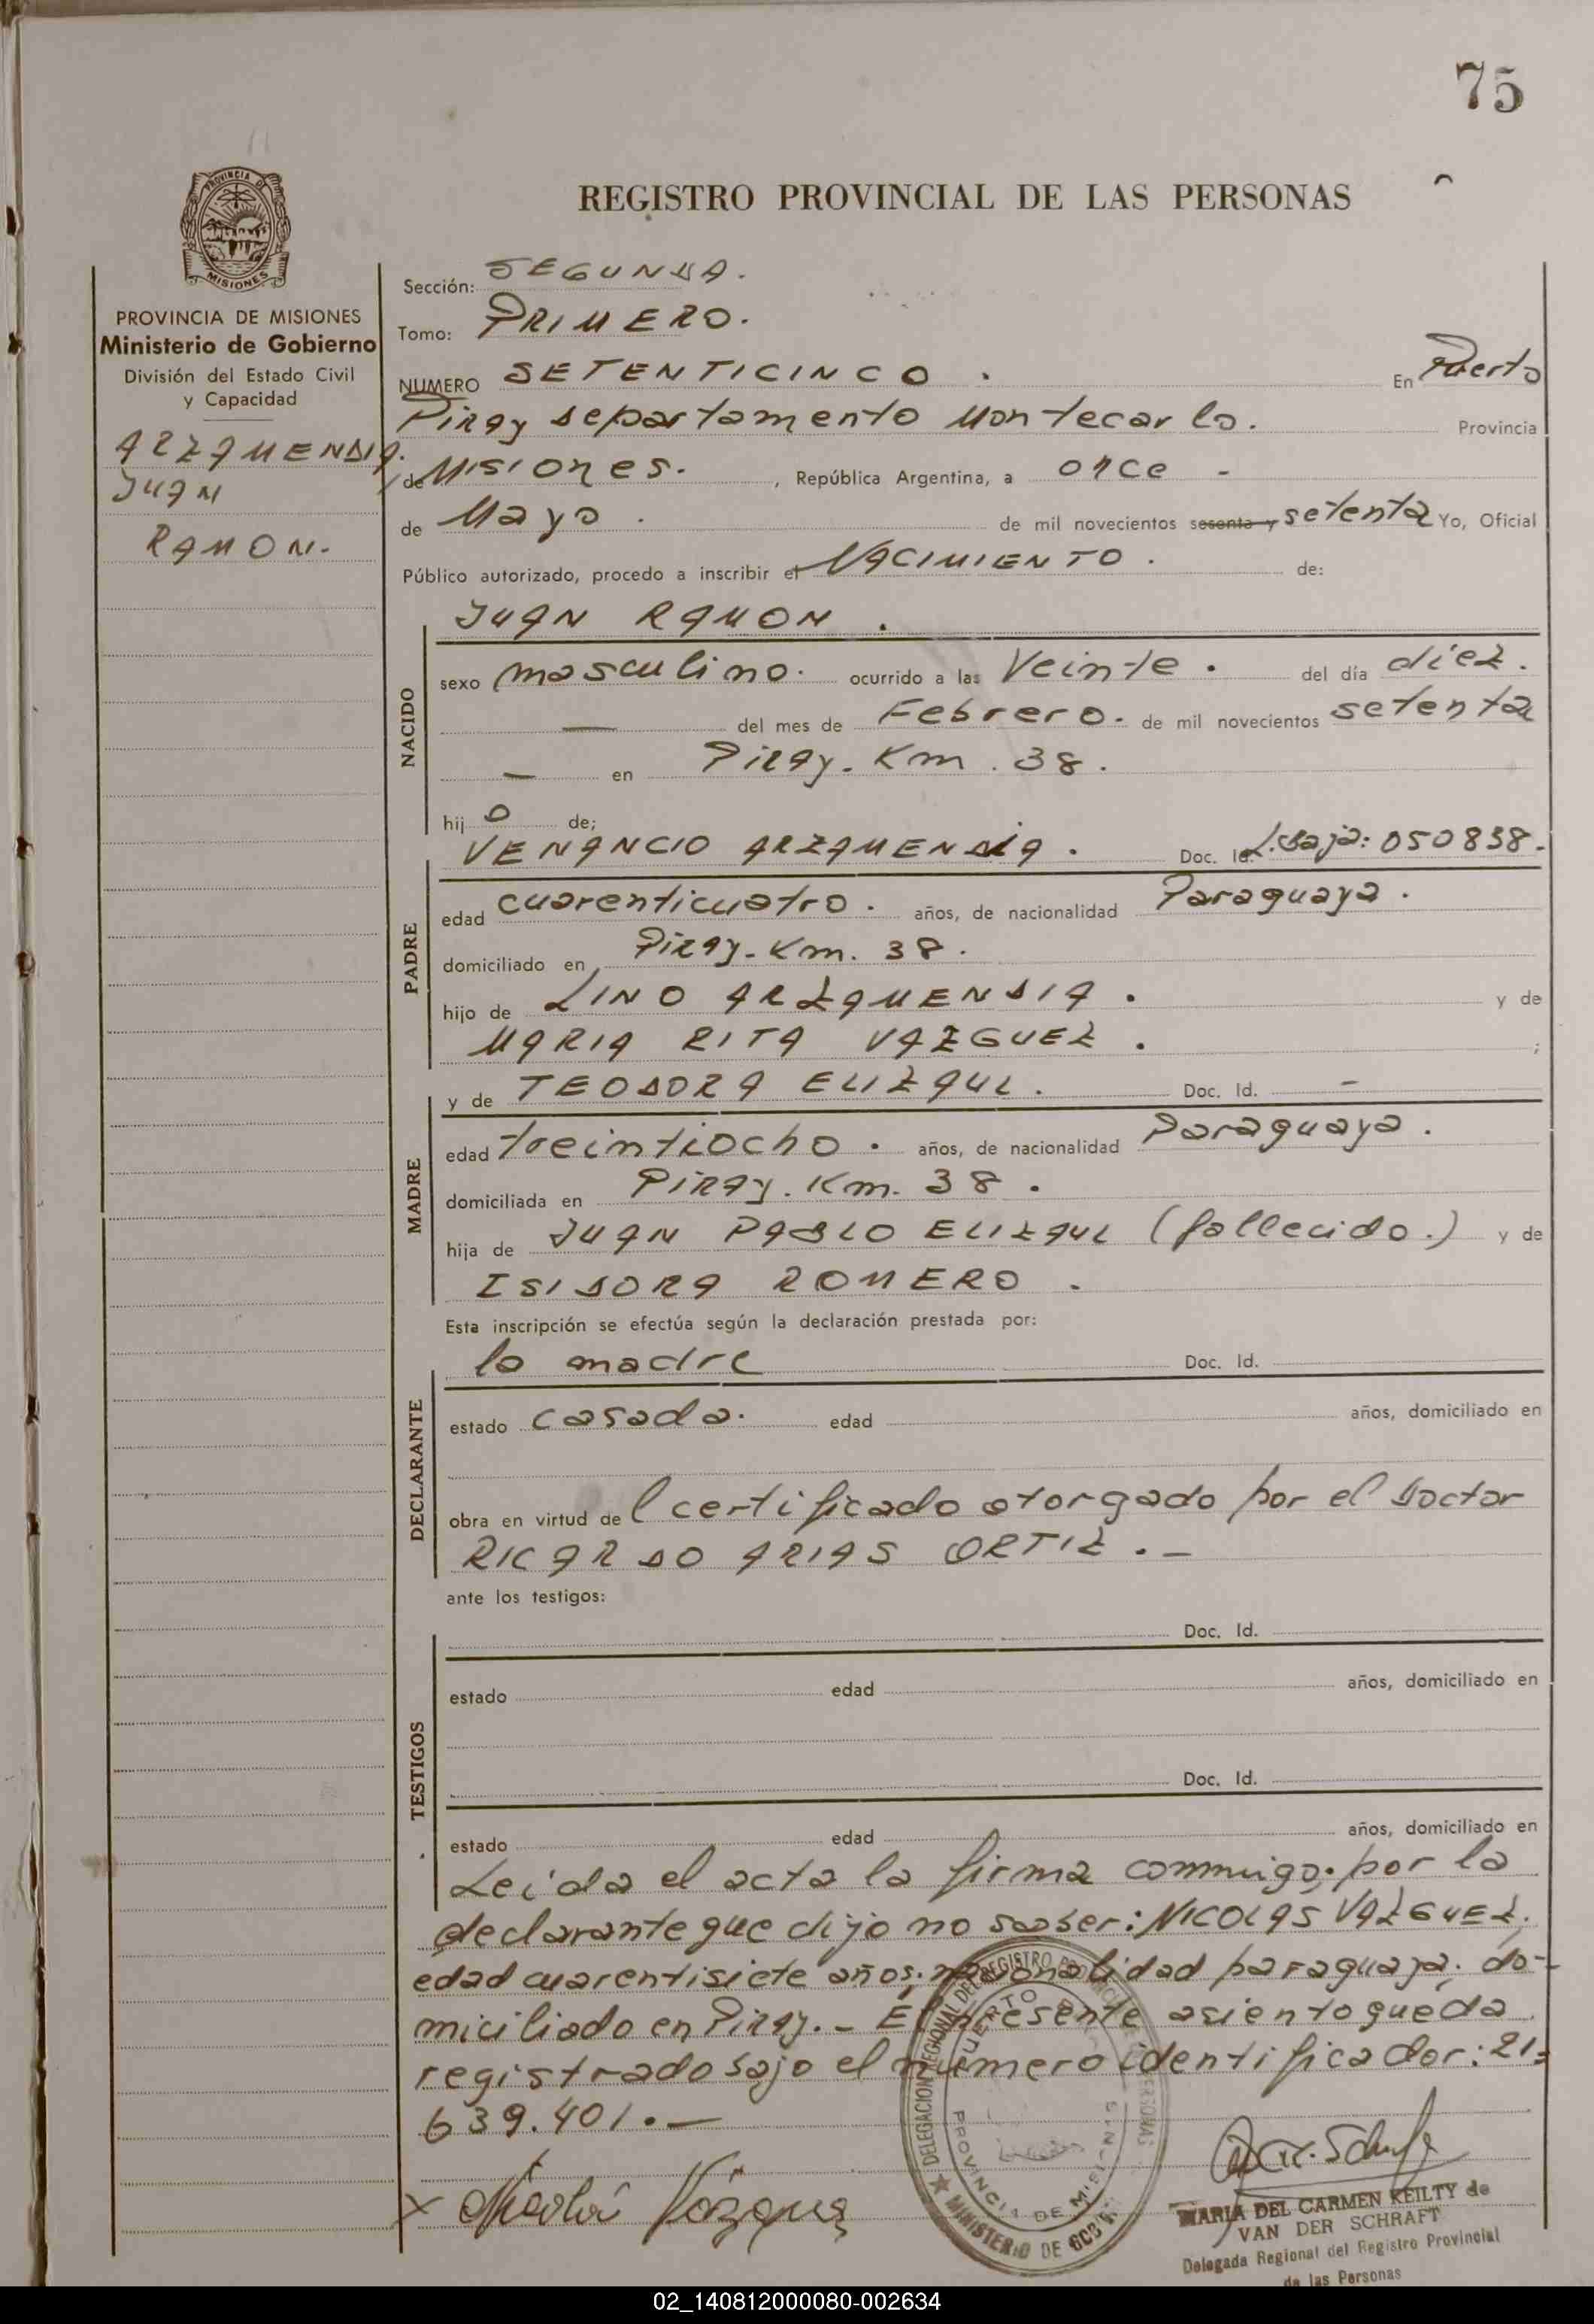 75
REGISTRO PROVINCIAL DE LAS PERSONAS
PROVINCIA DE
MISIONES
PROVINCIA DE MISIONES
Ministerio de Gobierno
División del Estado Civil
y Capacidad
ARZAMENDIA.
JUAN
RAMON.-
Sección: SEGUNDA.
Tomo: PRIMERO.
NUMERO SETENTICINCO . En Puerto
Piray departamento Montecarlo. Provincia
de Misiones. , República Argentina, a once -
de Mayo . de mil novecientos sesenta y setenta Yo, Oficial
Público autorizado, procedo a inscribir el NACIMIENTO . de:
JUAN RAMON .
NACIDO
sexo masculino. ocurrido a las Veinte . del día diez.
— del mes de Febrero. de mil novecientos setenta
— en Piray. Km. 38.
hij o de;
VENANCIO ARZAMENDIA . Doc. Id. L. Baja: 050838.-
PADRE
edad cuarenticuatro . años, de nacionalidad Paraguaya .
domiciliado en Piray. Km. 38 .
hijo de LINO ARZAMENDIA . y de
MARIA RITA VAZGUEZ . ;
y de TEODORA ELIZAUL . Doc. Id. —
MADRE
edad treintiocho . años, de nacionalidad Paraguaya .
domiciliada en Piray. Km. 38 .
hija de JUAN PABLO ELIZAUL (fallecido.) y de
ISIDORA ROMERO .
Esta inscripción se efectúa según la declaración prestada por:
la madre Doc. Id.
DECLARANTE
estado casada. edad años, domiciliado en
obra en virtud de l certificado otorgado por el Doctor
RICARDO ARIAS ORTIZ . —
ante los testigos:
Doc. Id.
TESTIGOS
estado edad años, domiciliado en
Doc. Id.
estado edad años, domiciliado en
Leida el acta la firma commigo; por la
declarante que dijo no saber: NICOLAS VAZGUEZ,
edad cuarentisiete años; nacionalidad paraguaya; do-
miciliado en Piray. - El presente asiento queda
registrado bajo el número identificador: 21.
639.401. —
DELEGACION REGIONAL DEL REGISTRO PROVINCIAL DE LAS PERSONAS
PUERTO
PROVINCIA DE MISIONES
MINISTERIO DE GOB
X Nicolás Vázquez
MARIA DEL CARMEN KEILTY de
VAN DER SCHRAFT
Delegada Regional del Registro Provincial
de las Personas
02_140812000080-002634